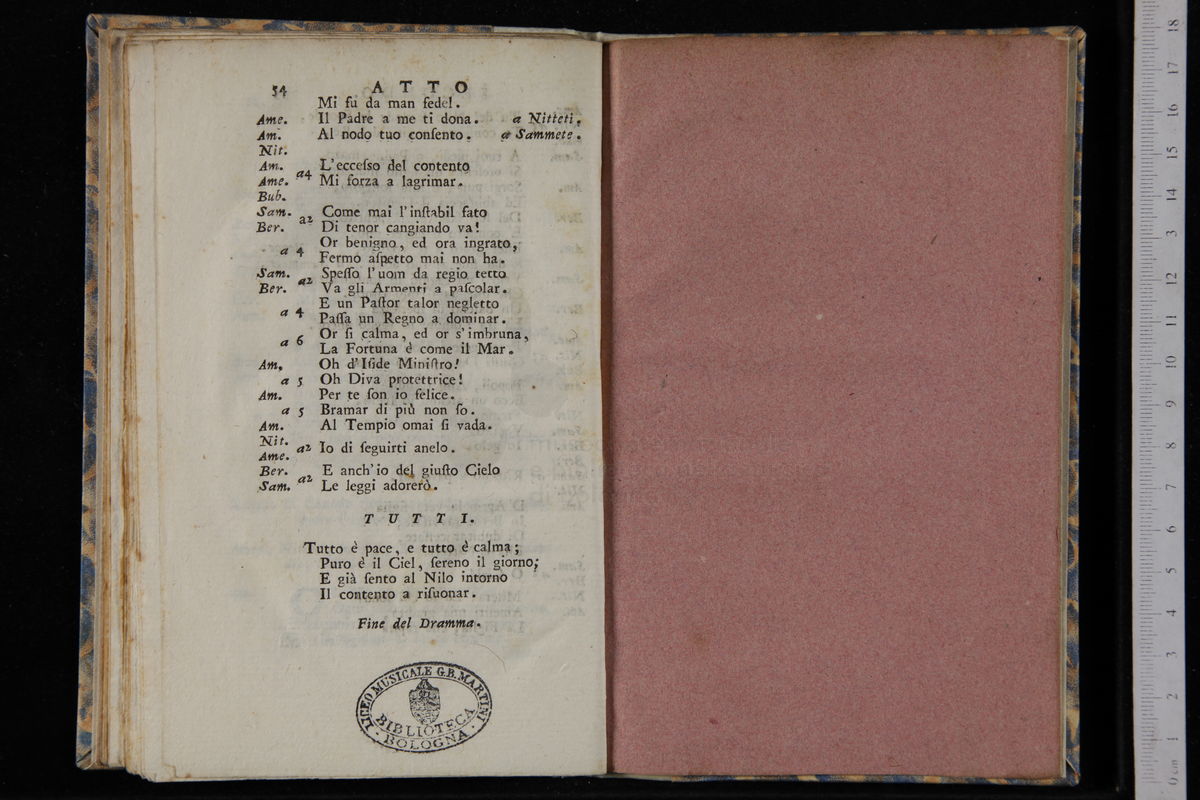 54 ATTO
Mi fu da man fedel.
Ame. Il Padre a me ti dona. a Nitteti.
Am. Al nodo tuo conſento. a Sammete.
Nit.
Am. L'ecceſso del contento
a4
Ame. Mi forza a lagrimar.
Bub.
Sam. Come mai l'inſtabil fato
a2
Ber. Di tenor cangiando va!
Or benigno, ed ora ingrato,
a 4
Fermo aſpetto mai non ha.
Sam. Speſſo l'uom da regio tetto
a2
Ber. Va gli Armenti a paſcolar.
E un Paſtor talor negletto
a 4
Paſſa un Regno a dominar.
Or ſi calma, ed or s'imbruna,
a 6
La Fortuna è come il Mar.
Am. Oh d'Iſide Miniſtro!
a 5 Oh Diva protettrice!
Am. Per te ſon io felice.
a 5 Bramar di più non ſo.
Am. Al Tempio omai ſi vada.
Nit.
a2 Io di ſeguirti anelo.
Ame.
Ber. E anch'io del giuſto Cielo
a2
Sam. Le leggi adorerò.
TUTTI.
Tutto è pace, e tutto è calma;
Puro è il Ciel, ſereno il giorno;
E già ſento al Nilo intorno
Il contento a riſuonar.
Fine del Dramma.
LICEO MUSICALE G.B. MARTINI
BIBLIOTECA
· BOLOGNA ·
0 cm 1 2 3 4 5 6 7 8 9 10 11 12 13 14 15 16 17 18